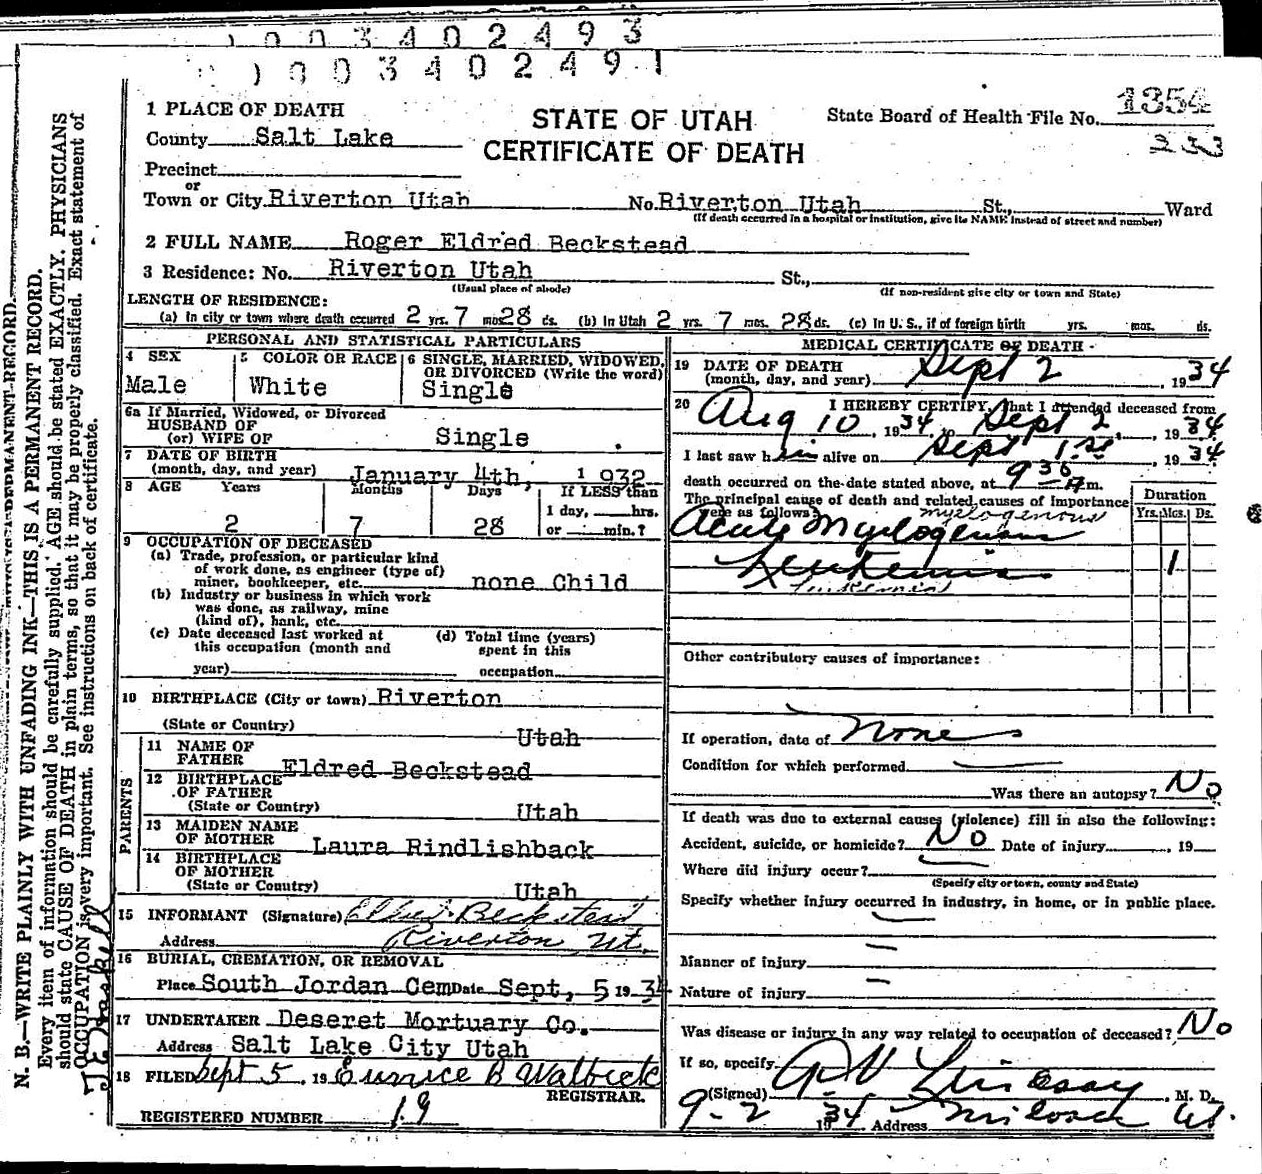 003402493
003402491
1 PLACE OF DEATH
STATE OF UTAH
CERTIFICATE OF DEATH
State Board of Health File No. 1354
233
County Salt Lake
Precinct
or
Town or City Riverton Utah No. Riverton Utah St., Ward
(If death occurred in a hospital or institution, give its NAME instead of street and number)
2 FULL NAME Roger Eldred Beckstead
3 Residence: No. Riverton Utah St.,
(Usual place of abode) (If non-resident give city or town and State)
LENGTH OF RESIDENCE:
(a) In city or town where death occurred 2 yrs. 7 mos 28 ds. (b) In Utah 2 yrs. 7 mos. 28 ds. (c) In U. S., if of foreign birth yrs. mos. ds.
PERSONAL AND STATISTICAL PARTICULARS
4 SEX Male
5 COLOR OR RACE White
6 SINGLE, MARRIED, WIDOWED, OR DIVORCED (Write the word) Single
6a If Married, Widowed, or Divorced
HUSBAND OF
(or) WIFE OF Single
7 DATE OF BIRTH
(month, day, and year) January 4th, 1932
8 AGE Years Months Days If LESS than
1 day, hrs.
2 7 28 or min.?
9 OCCUPATION OF DECEASED
(a) Trade, profession, or particular kind
of work done, as engineer (type of)
miner, bookkeeper, etc. none Child
(b) Industry or business in which work
was done, as railway, mine
(kind of), bank, etc.
(c) Date deceased last worked at
this occupation (month and
year)
(d) Total time (years)
spent in this
occupation
10 BIRTHPLACE (City or town) Riverton
(State or Country) Utah
PARENTS
11 NAME OF
FATHER Eldred Beckstead
12 BIRTHPLACE
OF FATHER
(State or Country) Utah
13 MAIDEN NAME
OF MOTHER Laura Rindlishback
14 BIRTHPLACE
OF MOTHER
(State or Country) Utah
15 INFORMANT (Signature) Eldred Beckstead
Address Riverton Ut.
16 BURIAL, CREMATION, OR REMOVAL
Place South Jordan Cem Date Sept, 5 1934
17 UNDERTAKER Deseret Mortuary Co.
Address Salt Lake City Utah
18 FILED Sept 5, 19 Eunice B Walbeck
REGISTRAR.
REGISTERED NUMBER 19
MEDICAL CERTIFICATE OF DEATH
19 DATE OF DEATH
(month, day, and year) Sept 2, 1934
20 I HEREBY CERTIFY, that I attended deceased from
Aug 10, 1934, to Sept 2, 1934
I last saw him alive on Sept 1st, 1934
death occurred on the date stated above, at 9 30 A m.
The principal cause of death and related causes of importance
were as follows: myelogenous
Acute Myelogenous
Leukemia
Leukemia
Duration
Yrs. Mos. Ds.
1
Other contributory causes of importance:
If operation, date of None
Condition for which performed
Was there an autopsy? No
If death was due to external causes (violence) fill in also the following:
Accident, suicide, or homicide? No Date of injury , 19
Where did injury occur?
(Specify city or town, county and State)
Specify whether injury occurred in industry, in home, or in public place.
Manner of injury
Nature of injury
Was disease or injury in any way related to occupation of deceased? No
If so, specify
(Signed) Lindsay, M. D.
9-2 1934 Address Ut.
N. B.—WRITE PLAINLY WITH UNFADING INK—THIS IS A PERMANENT RECORD.
Every item of information should be carefully supplied. AGE should be stated EXACTLY. PHYSICIANS
should state CAUSE OF DEATH in plain terms, so that it may be properly classified. Exact statement of
OCCUPATION is very important. See instructions on back of certificate.